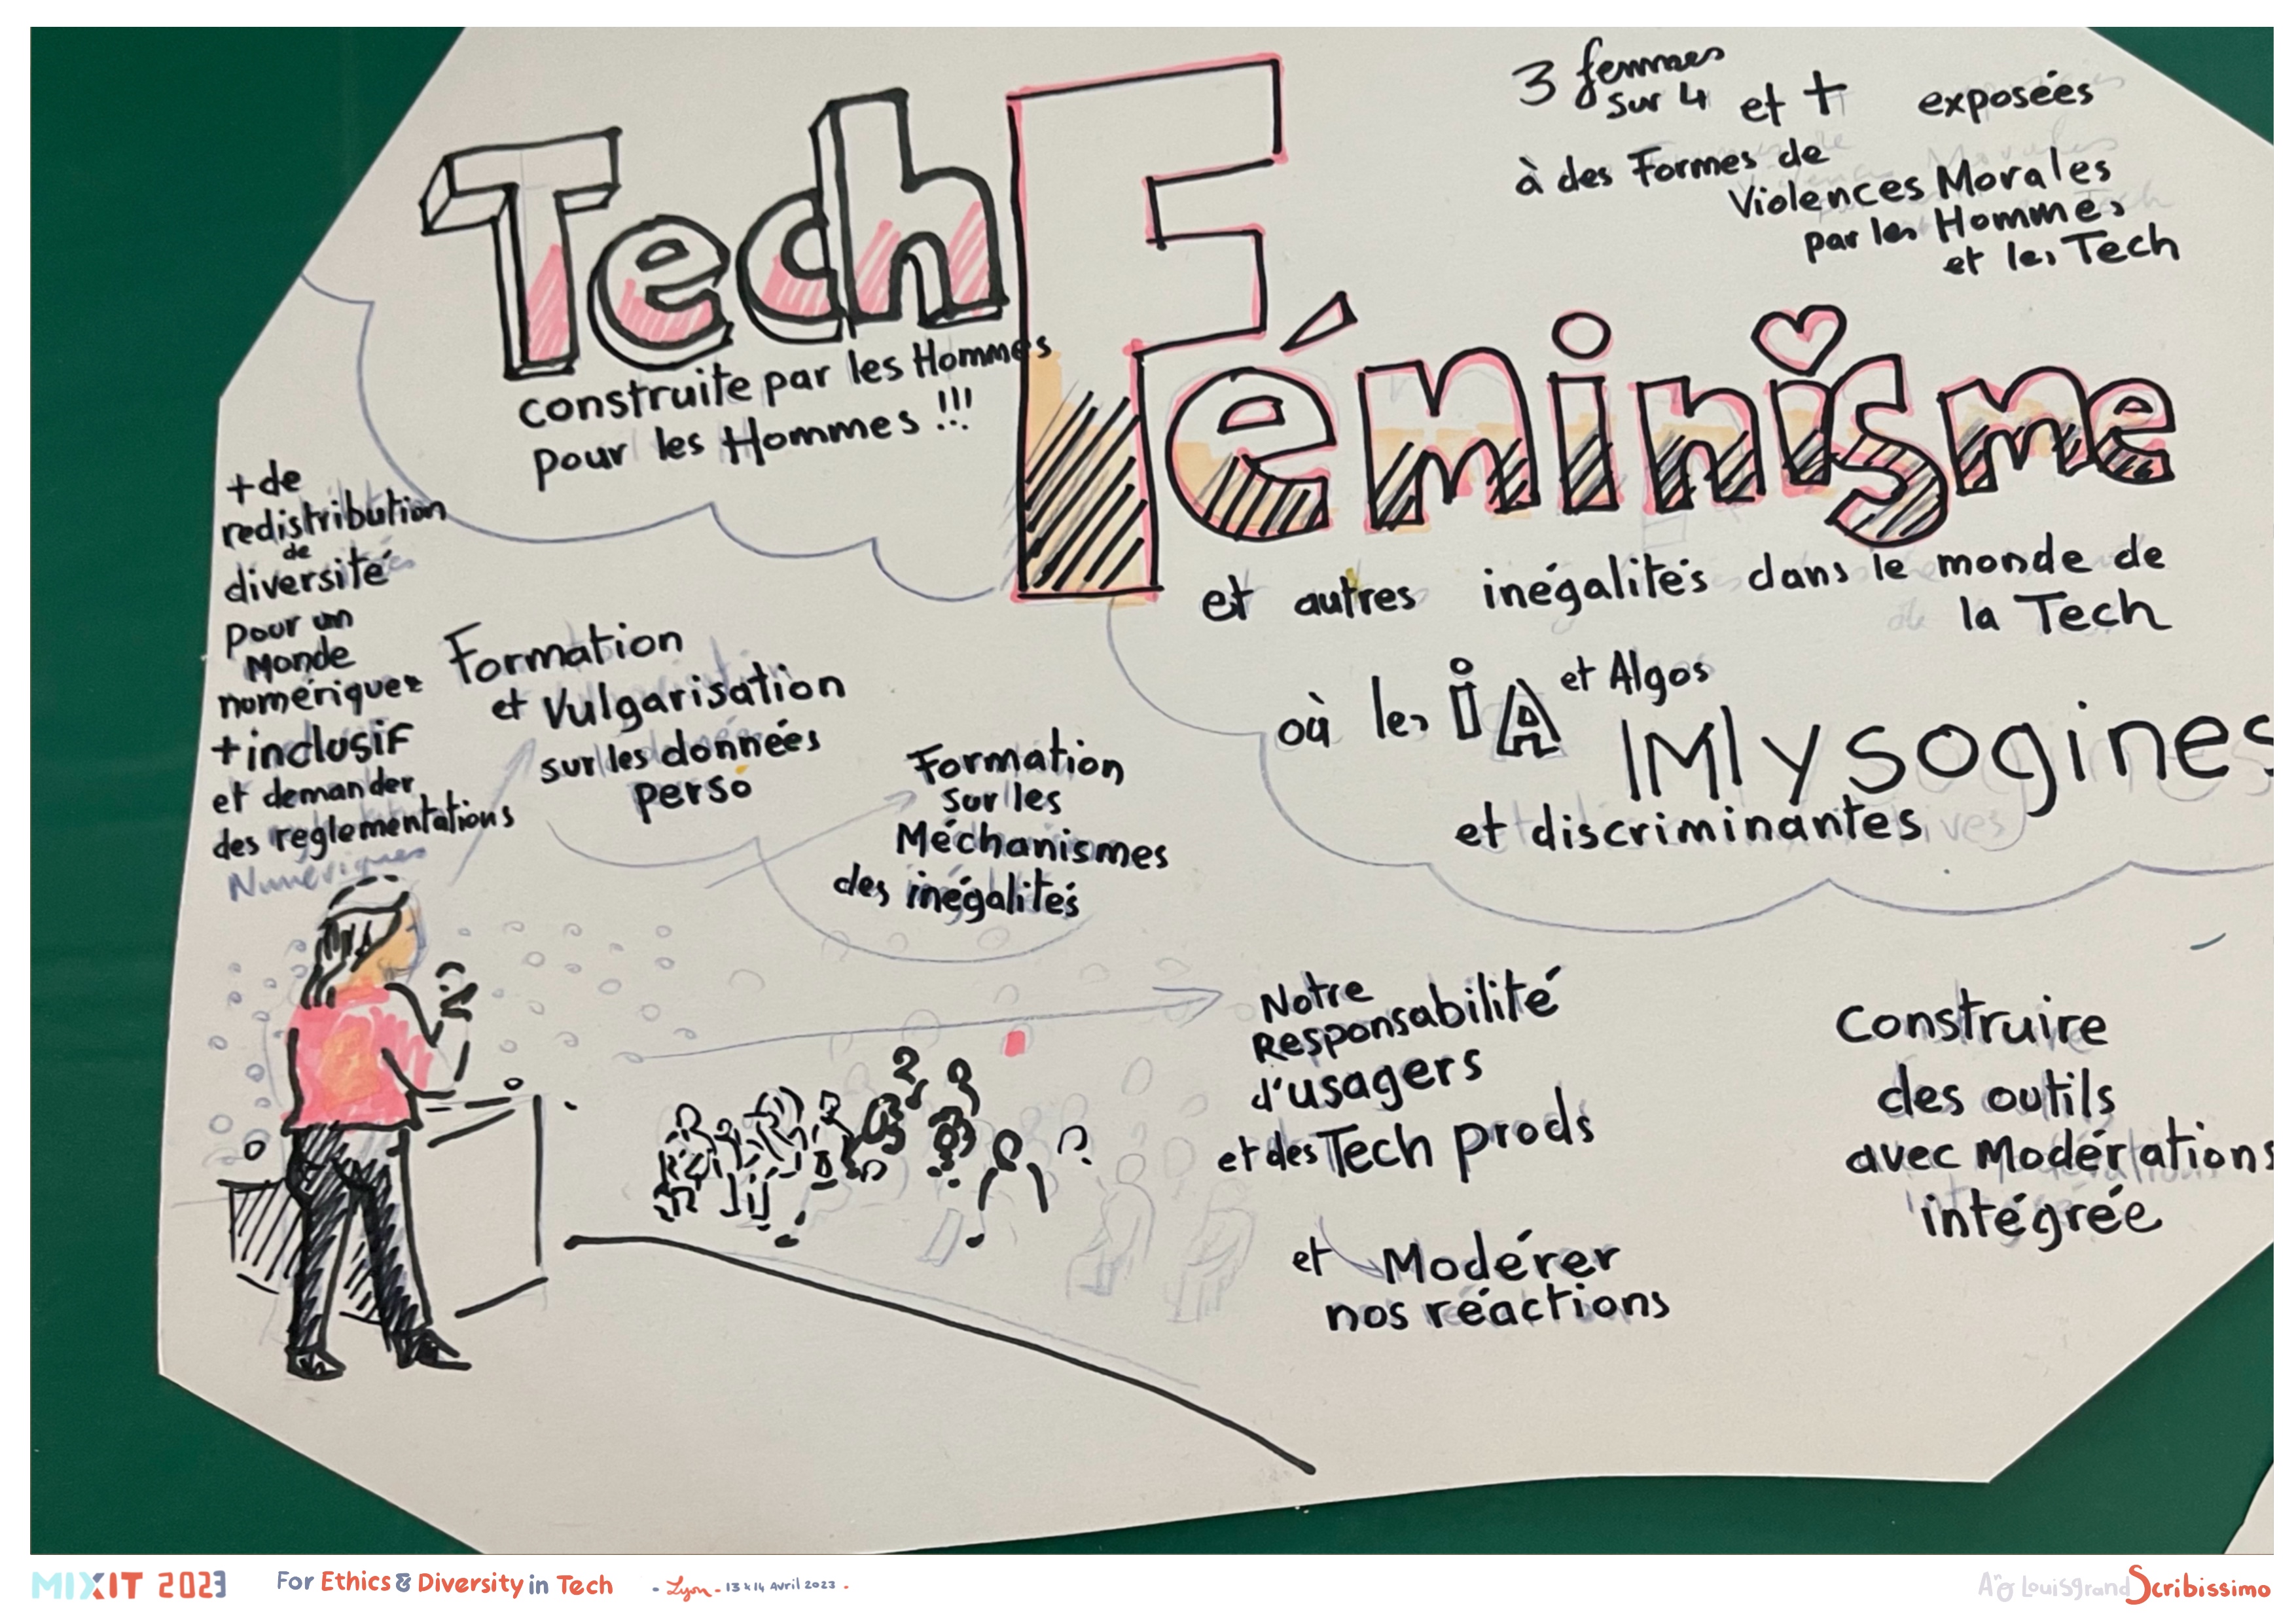 Tech
construite par les Hommes
pour les Hommes !!!
3 femmes
sur 4 et + exposées
à des Formes de
Violences Morales
par les Hommes
et les Tech
Féminisme
et autres inégalités dans le monde de
la Tech
où les iA et Algos
|M|ysogines
et discriminantes
+ de
redistribution
de
diversité
pour un
Monde
numérique
+ inclusif
et demander
des reglementations
Numériques
Formation
et Vulgarisation
sur les données
perso
Formation
sur les
Méchanismes
des inégalités
Notre
Responsabilité
d'usagers
et des Tech prods
et Modérer
nos réactions
Construire
des outils
avec Modérations
intégrée
MIXIT 2023 For Ethics & Diversity in Tech - Lyon - 13 & 14 Avril 2023 -
Louisgrand Scribissimo